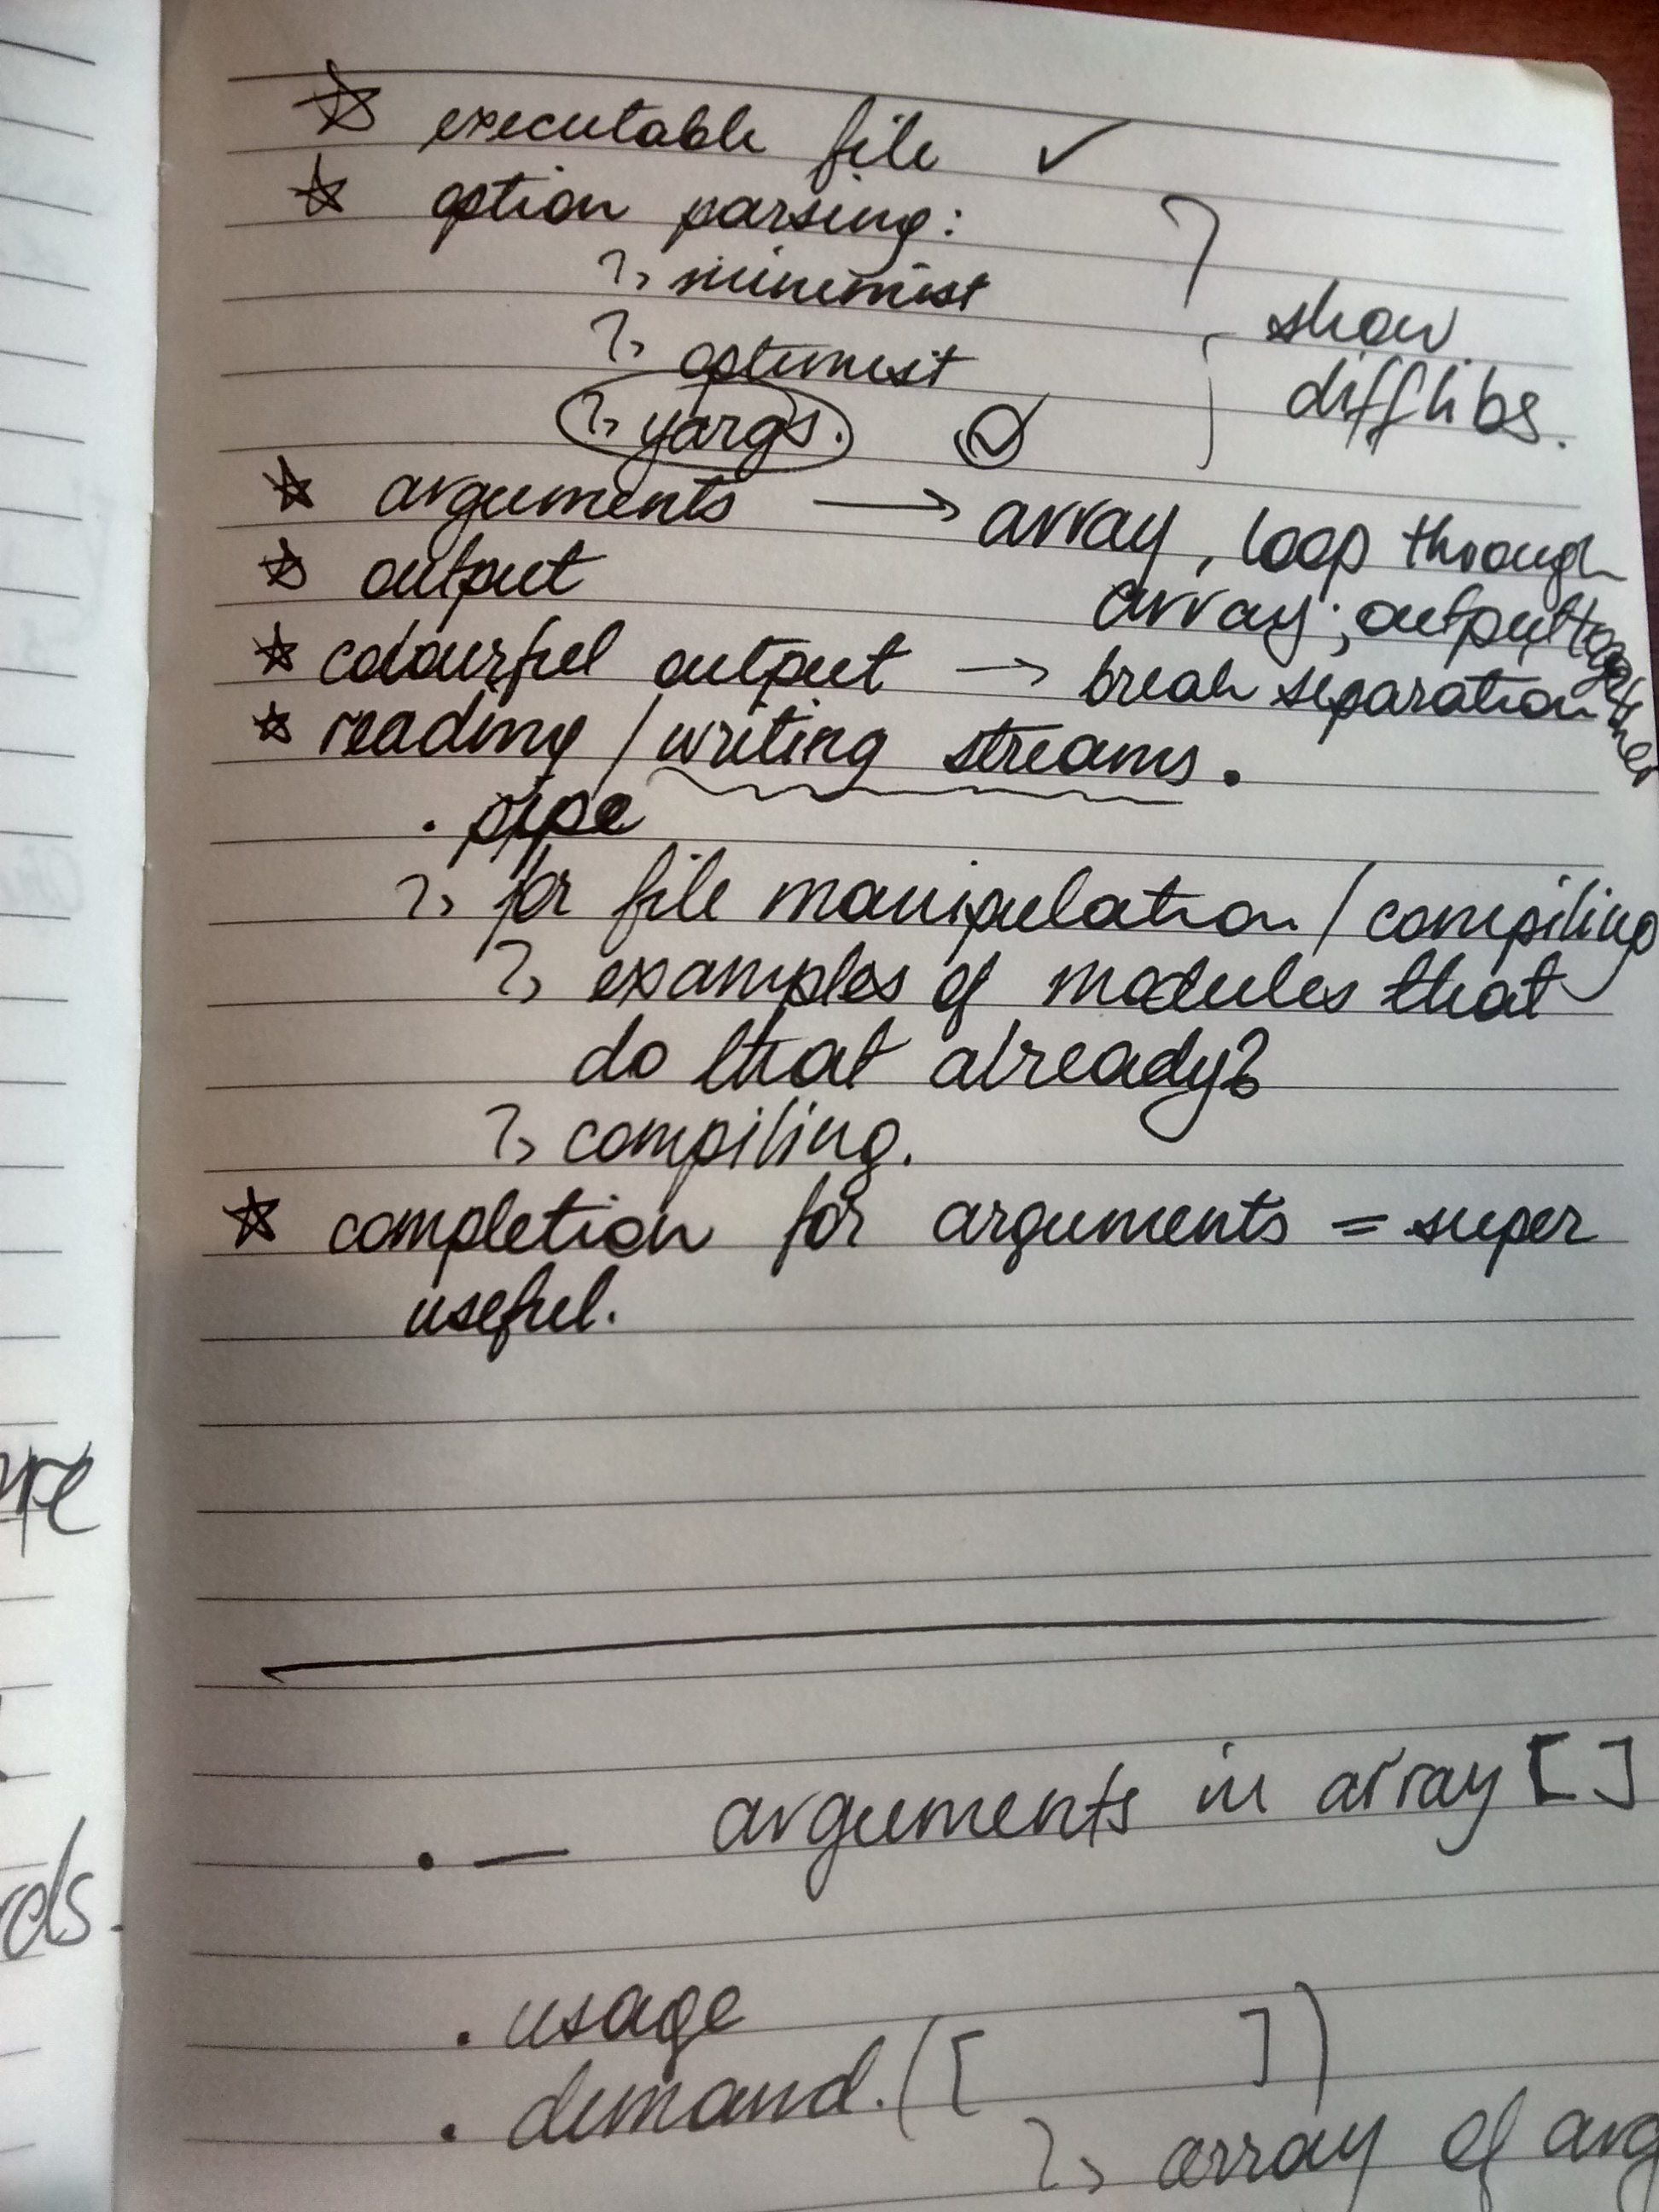 ☆ executable file ✓
☆ option parsing:
↳ minimist
↳ optimist
↳ yargs.
show
diff libs.
☆ arguments → array, loop through
array; output together
☆ output
☆ colourful output → break separation
☆ reading / writing streams.
• pipe
↳ for file manipulation / compiling
↳ examples of modules that
do that already?
↳ compiling.
☆ completion for arguments = super
useful.
• _ arguments in array [ ]
• usage
• demand. ([ ])
↳ array of arg